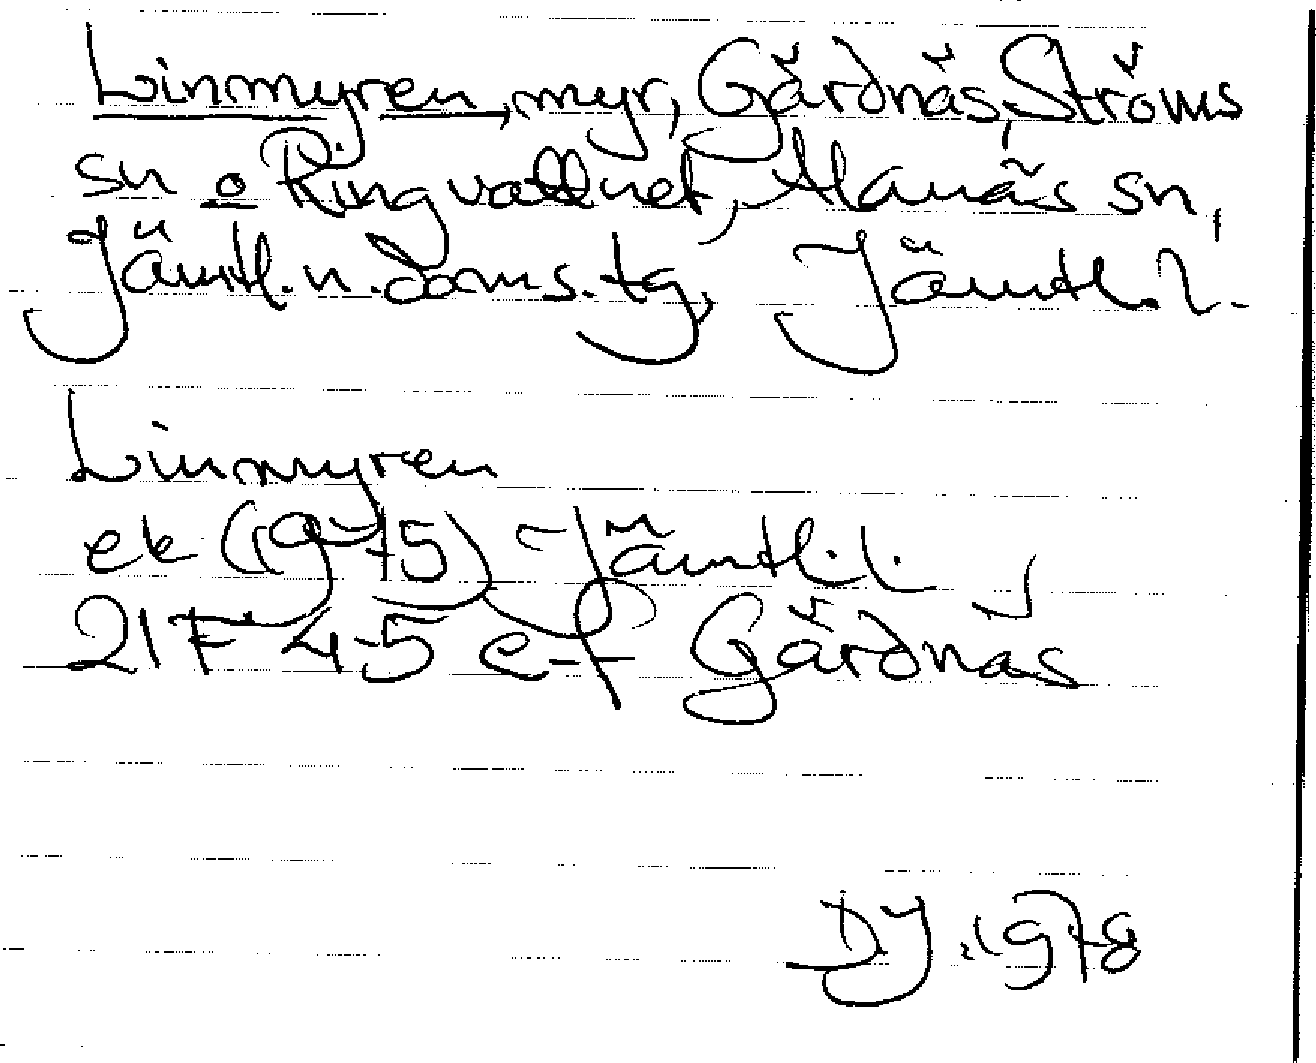 Linmyren, myr, Gärdnäs, Ströms
sn o Ringvattnet, Alanäs sn,
Jämtl. n. doms. tg, Jämtl. l.
Linmyren
ek (1975) Jämtl. l.
21 F 4-5 e-f Gärdnäs
DJ. 1978